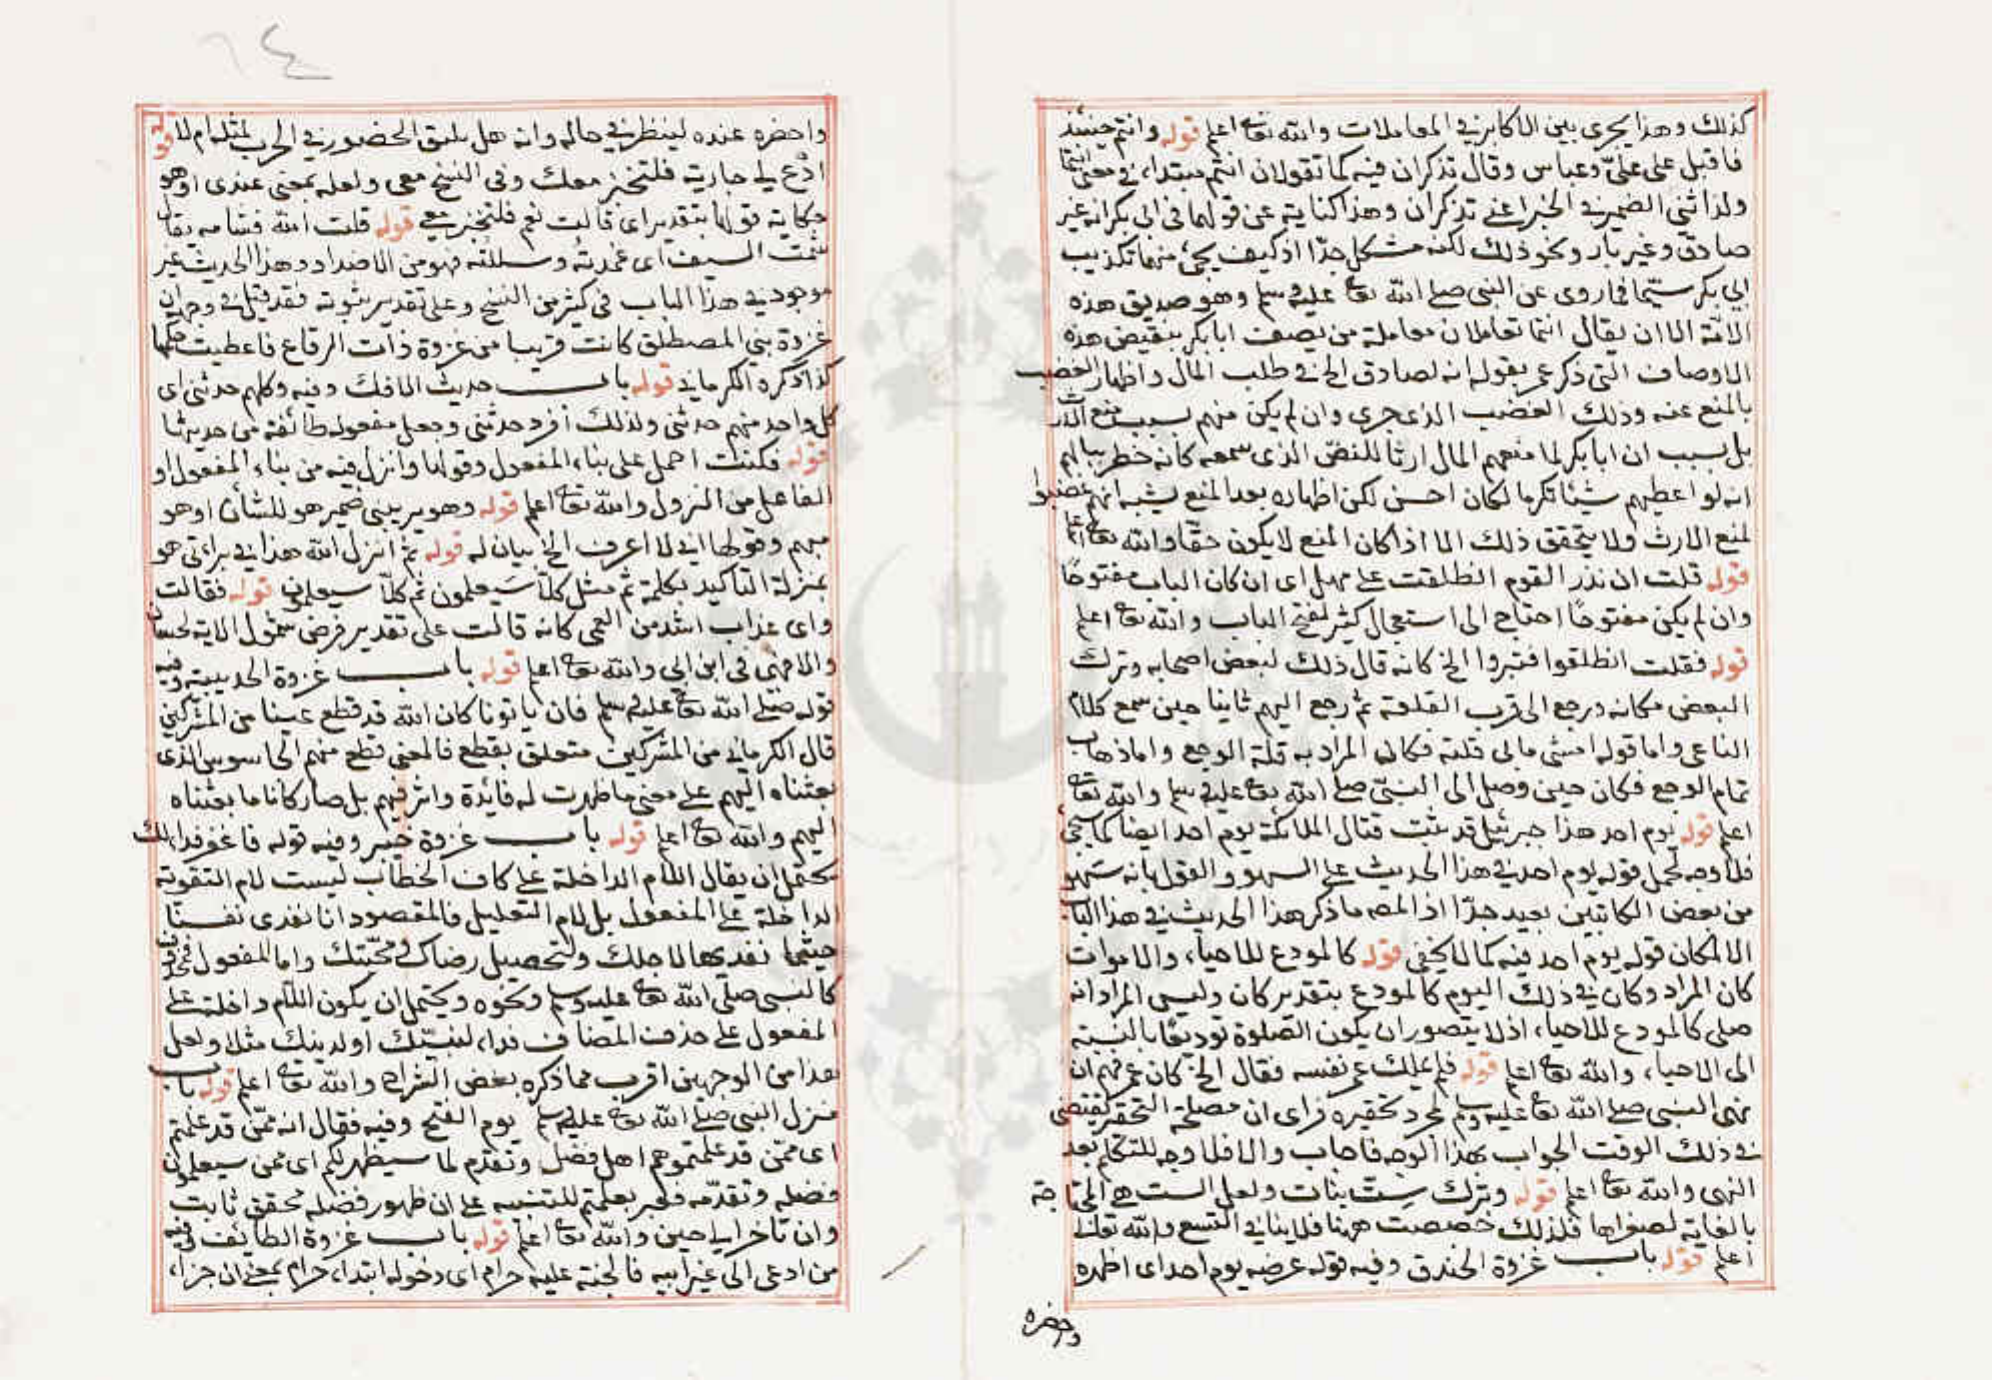 كذلك وهذا يجرى بين الاكابر في المعاملات والله تعا اعلم قوله وانتم حينئذ
فاقبل على علىّ وعباس وقال تذكران فيه كما تقولان انتم مبتداء في معنى انتما
ولذا ثنى الضمير في الخبر اعنے تذكران وهذا كناية عن قولهما فى ابى بكر انه غير
صادق وغير بار ونحو ذلك لكنه مشكل جدّا اذ كيف يجئ منهما تكذيب
ابي بكر سيّما فيما روى عن النبى صلے الله تعا عليه وسلم وهو صديق هذه
الامّة الا ان يقال انتما تعاملان معاملة من يصف ابا بكر بنقيض هذه
الاوصاف التى ذكر عمر بقوله انه لصادق الخ في طلب المال واظهار الغضب
بالمنع عنه وذلك الغضب الذى جرى وان لم يكن منهم لسبب منع الارث
بل بسبب ان ابا بكر لما منعهم المال ارثا للنصّ الذى سمعه كانه خطر ببالهم
انه لو اعطيهم شيئا تكرما لكان احسن لكن اظهاره بعد المنع يشبه انهم غضبوا
لمنع الارث ولا يتحقق ذلك الا اذا كان المنع لا يكون حقّا والله تعا اعلم
قوله قلت ان نذر القوم انطلقت على مهل اى ان كان الباب مفتوحًا
وان لم يكن مفتوحًا احتاج الى استعجال كثير لفتح الباب والله تعا اعلم
قوله فقلت انطلقوا فبتروا الخ كانه قال ذلك لبعض اصحابه وترك
البعض مكانه ورجع الى قرب القلعة ثم رجع اليهم ثانيا حين سمع كلام
الناعى واما قوله امشى مابى قلبة فكان المراد به قلة الوجع واما ذهاب
تمام الوجع فكان حين وصل الى النبىّ صلے الله تعا عليه وسلم والله تعا
اعلم قوله يوم احد هذا جبرئيل قد ثبت قتال الملائكة يوم احد ايضا كما سيجئ
فلا وجه لحمل قوله يوم احد في هذا الحديث على السهو والقول بانه سهو
من بعض الكاتبين بعيد جدّا اذ المصه ما ذكر هذا الحديث في هذا الباب
الا لمكان قوله يوم احد فيه كما لا يخفى قوله كالمودع للاحياء والاموات
كان المراد وكان في ذلك اليوم كالمودع بتقدير كان وليس المراد انه
صلى كالمودع للاحياء اذ لا يتصور ان يكون الصلوة توديعًا بالنسبة
الى الاحياء والله تعا اعلم قوله فلم يملك عمر نفسه فقال الخ كان عمر فهم ان
نهى النبى صلے الله تعا عليه وسلم لمجرد تحقيره فراى ان مصلحة التحقير يقتضى
في ذلك الوقت الجواب بهذا الوجه فاجاب والا فلا وجه للتكلم بعد
النهى والله تعا اعلم قوله وترك ستّ بنات ولعل الست هے المحتاجة
بالغاية لصغرها فلذلك خصصت ههنا فلا ينافي التسع والله تعالے
اعلم قوله باب غزوة الخندق وفيه قوله عرضه يوم احد اى اظهره
واحضره
واحضره عنده لينظر في حاله وانه هل يليق الحضور في الحرب لمثله ام لا قوله
ادع لي جارية فلتخبز معك وفى النسخ معى ولعله بمعنى عندى او هو
حكاية قولها بتقدير اى قالت نعم فلتخبز معي قوله قلت الله فشامه يقال
شمت السيف اى غمدته وسللته فهو من الاضداد وهذا الحديث غير
موجود في هذا الباب فى كثير من النسخ وعلى تقدير ثبوته فقد قيل في وجهه ان
غزوة بنى المصطلق كانت قريبا من غزوة ذات الرقاع فاعطيت حكمها
كذا ذكره الكرماني قوله باب حديث الافك وفيه وكلهم حدثنى اى
كل واحد منهم حدثنى ولذلك افرد حدثنى وجعل مفعوله طائفة من حديثها
قوله فكنت احمل على بناء المفعول وقولها وانزل فيه من بناء المفعول او
الفاعل من النزول والله تعا اعلم قوله وهو يريبنى ضمير هو للشأن او هو
مبهم وقولها اني لا اعرف الخ بيان له قوله ثم انزل الله هذا في براءتى هو
بمنزلة التاكيد بكلمة ثم مثل كلّا سيعلمون ثم كلّا سيعلمون قوله فقالت
واى عذاب اشد من العمى كانه قالت على تقدير فرض شمول الاية لحسان
والا فهى فى ابن ابى والله تعا اعلم قوله باب غزوة الحديبية وفيه
قوله صلے الله تعا عليه وسلم فان ياتونا كان الله قد قطع عينا من المشركين
قال الكرماني من المشركين متعلق بقطع فالمعنى قطع منهم الجاسوس الذى
بعثناه اليهم على معنى ما ظهرت له فائدة واثر فيهم بل صار كانا ما بعثناه
اليهم والله تعا اعلم قوله باب غزوة خيبر وفيه قوله فاغفر فداء لك
يحتمل ان يقال اللام الداخلة على كاف الخطاب ليست لام التقوية
الداخلة على المفعول بل لام التعليل فالمقصود انا نفدى نفسنا
حيثما نفديها لاجلك ولتحصيل رضاك ومحبّتك واما المفعول فمحذوف
كالنبى صلّى الله تعا عليه وسلم ونحوه ويحتمل ان يكون اللام داخلة على
المفعول على حذف المضاف فداء لنبيّك او لدينك مثلا ولعل
هذا من الوجهين اقرب مما ذكره بعض الشراح والله تعا اعلم قوله باب
منزل النبى صلے الله تعا عليه وسلم يوم الفتح وفيه فقال انه ممّن قد علمتم
اى ممّن قد علمتموهم اهل فضل وتقدم لما سيظهر لكم اى ممن سيعلمون
فضله وتقدّمه فعبر بعلمتم للتنبيه على ان ظهور فضله محقق ثابت
وان تاخر الى حين والله تعا اعلم قوله باب غزوة الطائف وفيه
من ادعى الى غير ابيه فالجنة عليه حرام اى دخوله ابتداء حرام بمعنے ان جزاء